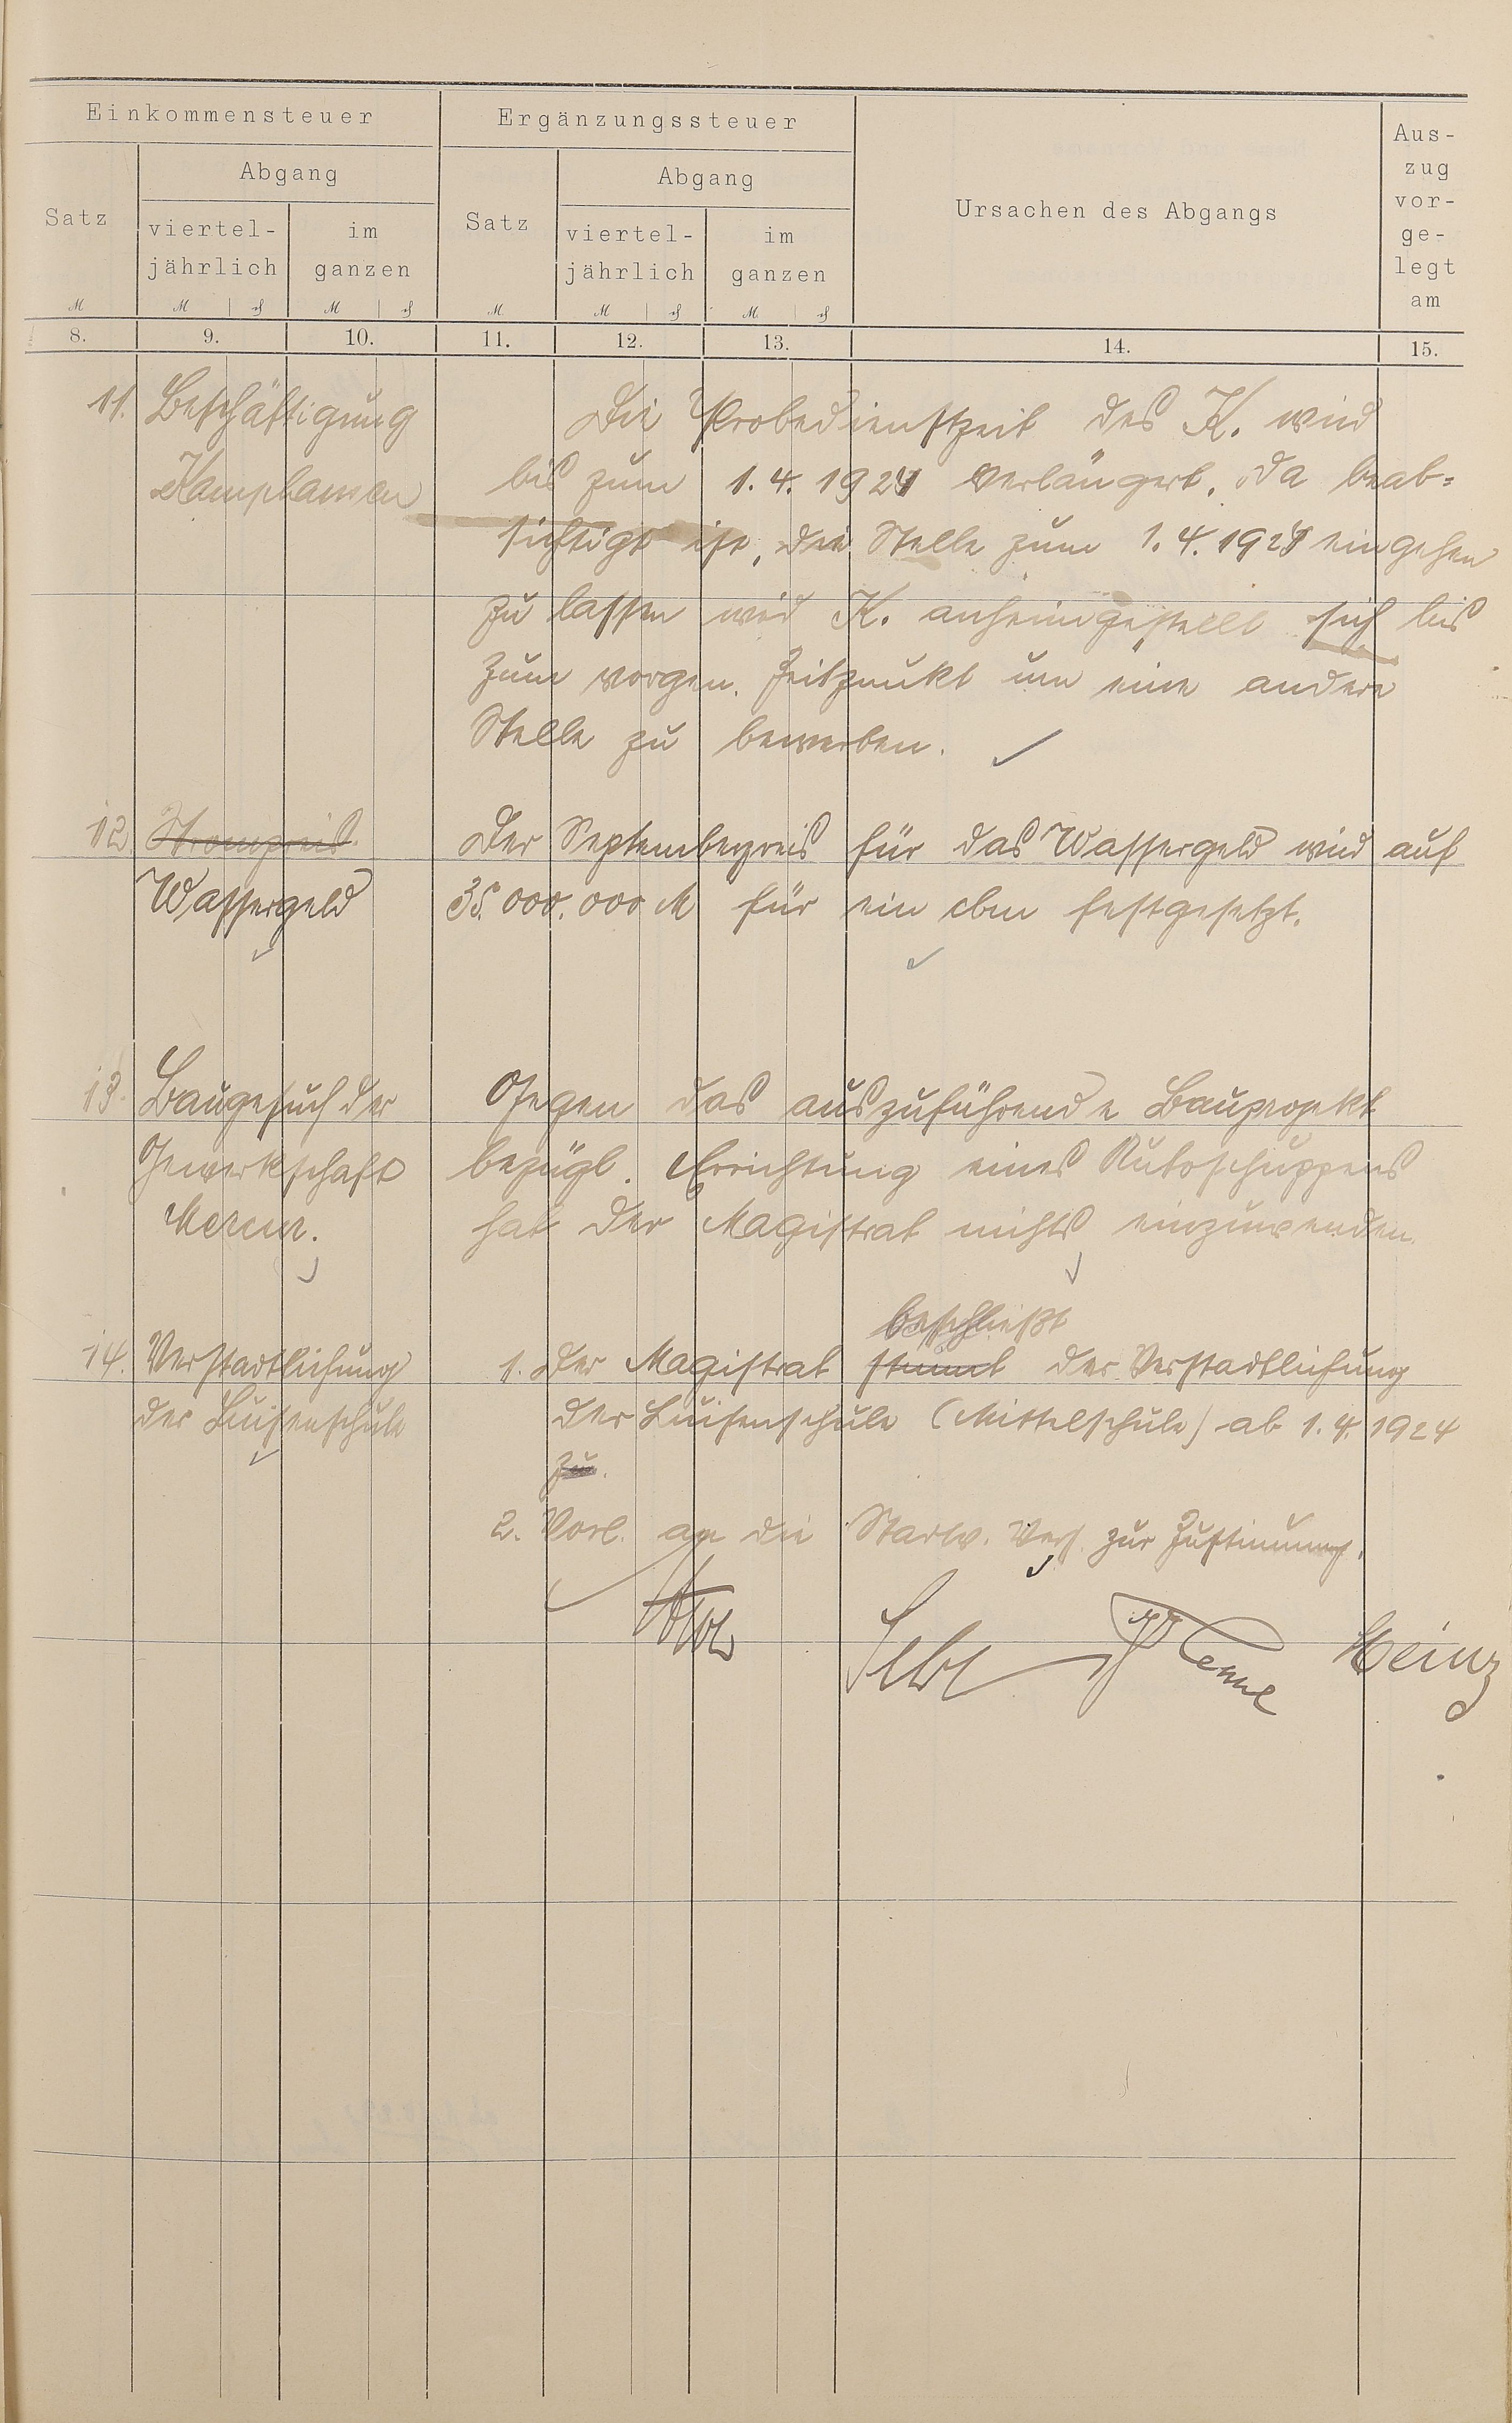 Einkommensteuer
Ergänzungssteuer
Ursachen des Abgangs
Aus-
zug
vor-
ge-
legt
am
Satz
Abgang
viertel-
jährlich
im
ganzen
Satz
Abgang
viertel-
jährlich
im
ganzen
M
M
₰
M
₰
M
M
₰
M
₰
8. 9. 10. 11. 12. 13. 14. 15.
11. Beschäftigung
Kamphausen
Die Probedienstzeit des K. wird
bis zum 1. 4. 1924 verlängert. Da beab-
sichtigt ist, die Stelle zum 1. 4. 1924 eingehen
zu lassen wird K. anheimgestellt sich bis
zum vorgen. Zeitpunkt um eine andere
Stelle zu bewerben.
12. Strompreis.
Wassergeld
Der Septemberpreis für das Wassergeld wird auf
35.000.000 M für ein cbm festgesetzt.
13. Baugesuch der
Gewerkschaft
Mercur.
Gegen das auszuführende Bauprojekt
bezügl. Errichtung eines Autoschuppens
hat der Magistrat nichts einzuwenden.
14. Verstadtlichung
der Luisenschule
beschließt
1. Der Magistrat stimmt der Verstadtlichung
der Luisenschule (Mittelschule) ab 1. 4. 1924
zu.
2. Vorl. an die Stadtv. Vers. zur Zustimmung.
Heinz